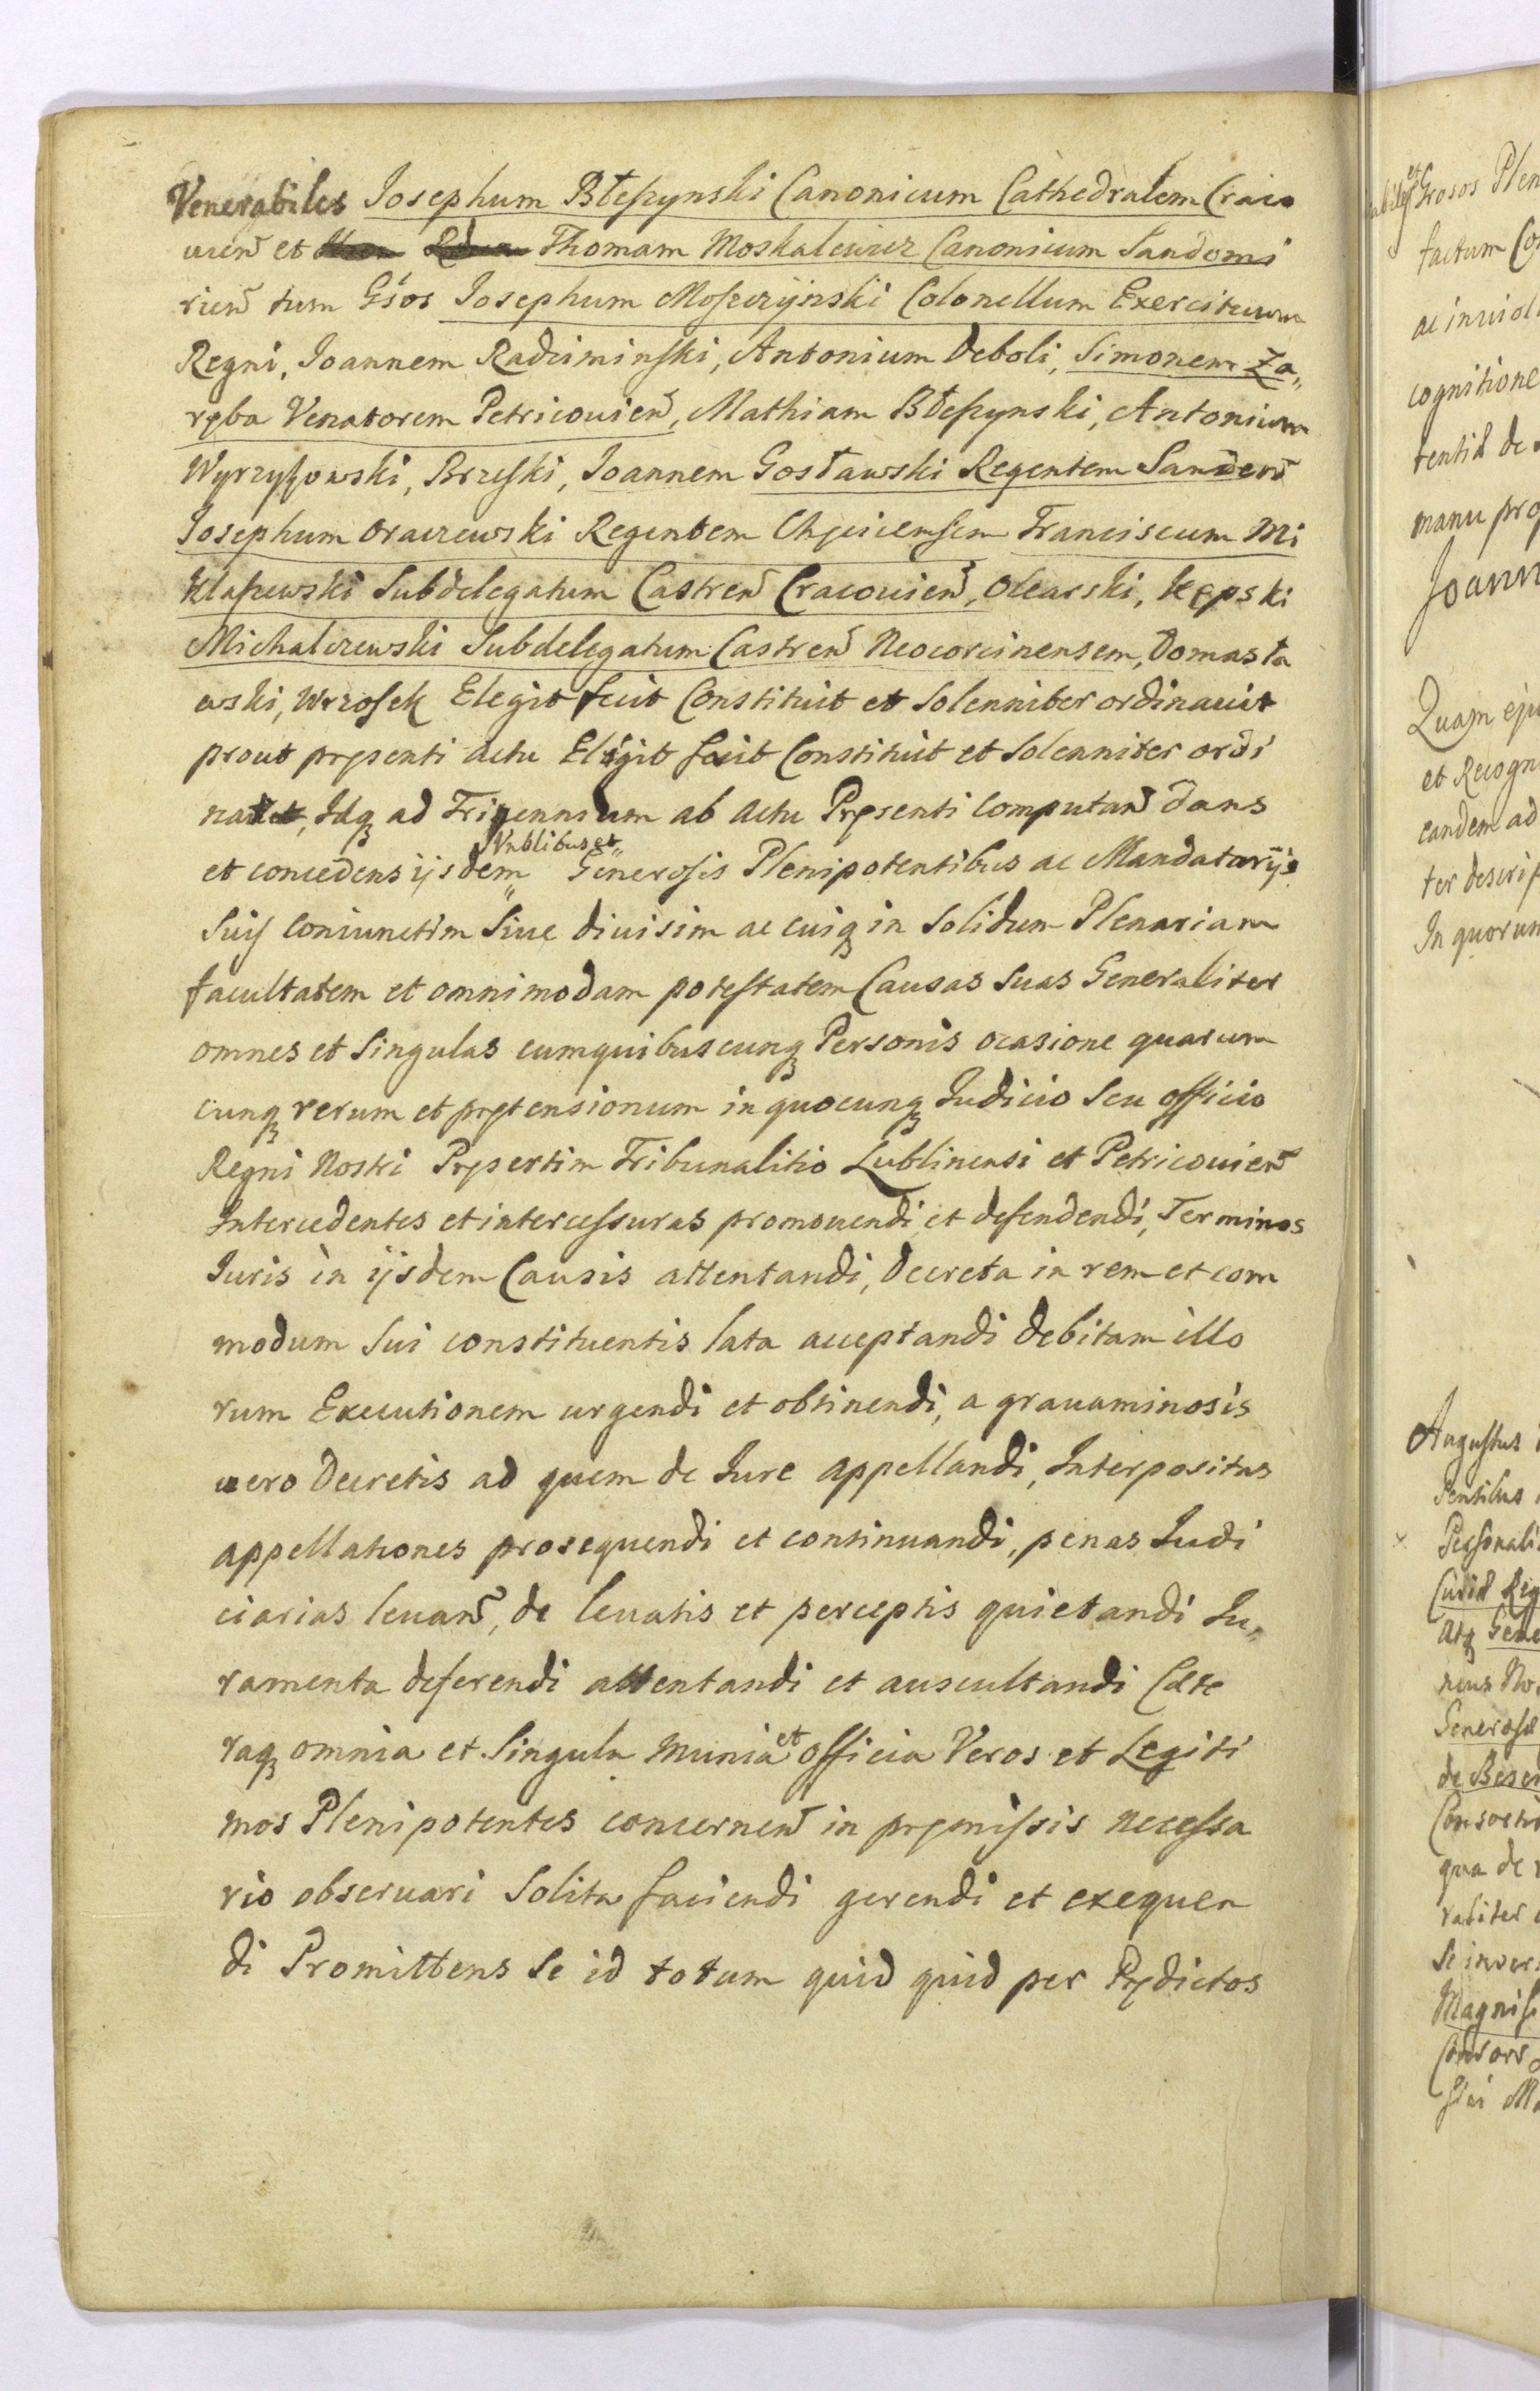 Venerabiles Josephum Błeszynski Canonicum Cathedralem Craco
uien et Thomam Moskalewicz Canonicum Sandomi
rien tum Gsos Josephum Moszczynski Colonellum Exercituum
Regni, Joannem Radziminski, Antonium Deboli, Simonem Za„
ręba Venatorem Petricouien, Mathiam Błeszynski, Antonium
Wyrzyszowski, Brzeski, Joannem Gosławski Regentem Sanden
Josephum Oraczewski Regentem Chęcicensem Franciscum Mi
klaszewski Subdelegatum Castren Cracouien, Olearski, Kępski
Michalczewski Subdelegatum Castren Neocorcinensem, Domasła
wski, Wrzosek Elegit fecit Constituit et Solenniter ordinauit
prout pręsenti actu Eligit facit Constituit et Solenniter ordi
nat, Idq ad Triennium ab actu Pręsenti Computan dans
et concedens ijsdem Vnblibus et Generosis Plenipotentibus ac Mandatarijs
Suis coniunctim Siue diuisim ac cuiq in Solidum Plenariam
facultatem et omnimodam potestatem Causas Suas Generaliter
omnes et Singulas cumquibuscunq Personis ocasione quarum
cunq rerum et prętensionum in quocunq Judicio Seu officio
Regni Nostri Pręsertim Tribunalitio Lublinensi et Petricouien
Intercedentes et intercessuras promouendi et defendendi, Terminos
Juris in ijsdem Causis attentandi, Decreta in rem et com
modum Sui constituentis lata acceptandi debitam illo
rum Executionem urgendi et obtinendi, a grauaminosis
uero Decretis ad quem de Jure appellandi, Interpositas
appellationes prosequendi et continuandi, penas Judi
ciarias leuan, de leuatis et perceptis quietandi Ju„
ramenta deferendi attentandi et auscultandi Cęte
raq omnia et Singula munia et officia Veros et Legiti
mos Plenipotentes concernen in pręmissis necessa
rio obseruari Solita faciendi gerendi et exequen
di Promittens Se id totum quid quid per Prędictos
et
Grosos Plen
factum Co
ac inuiol
cognitione
tentis de
manu prop
Joann
Quam eju
et Recogn
eandem ad
ter descrip
In quorum
Augustus
Personali
Generosæ
qua de
raliter
Se inuer
Magnif